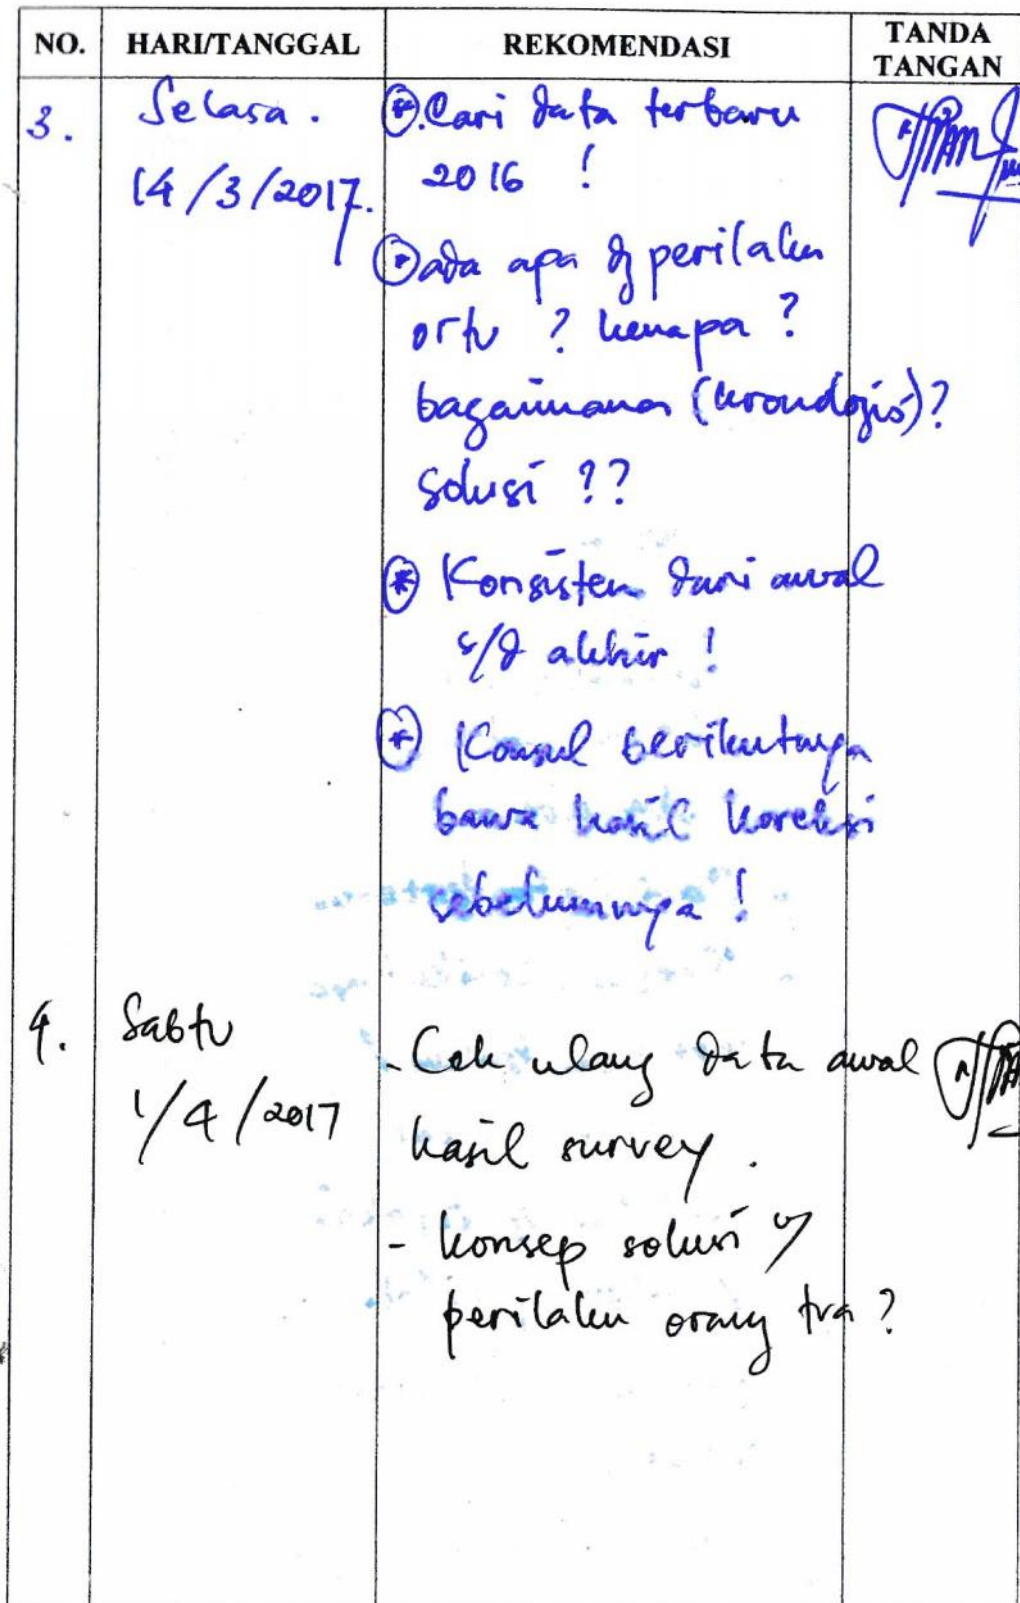 NO. HARI/TANGGAL REKOMENDASI TANDA TANGAN
3. Selasa.
14/3/2017.
* Cari data terbaru
2016 !
* ada apa dg perilaku
ortu ? kenapa ?
bagaimana (kronologis)?
Solusi ??
* Konsisten dari awal
s/d akhir !
* Konsul berikutnya
bawa hasil koreksi
sebelumnya !
4. Sabtu
1/4/2017
- Cek ulang data awal
hasil survey.
- konsep solusi
perilaku orang tua ?